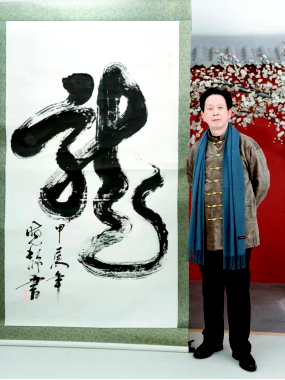 龍
甲辰年
書